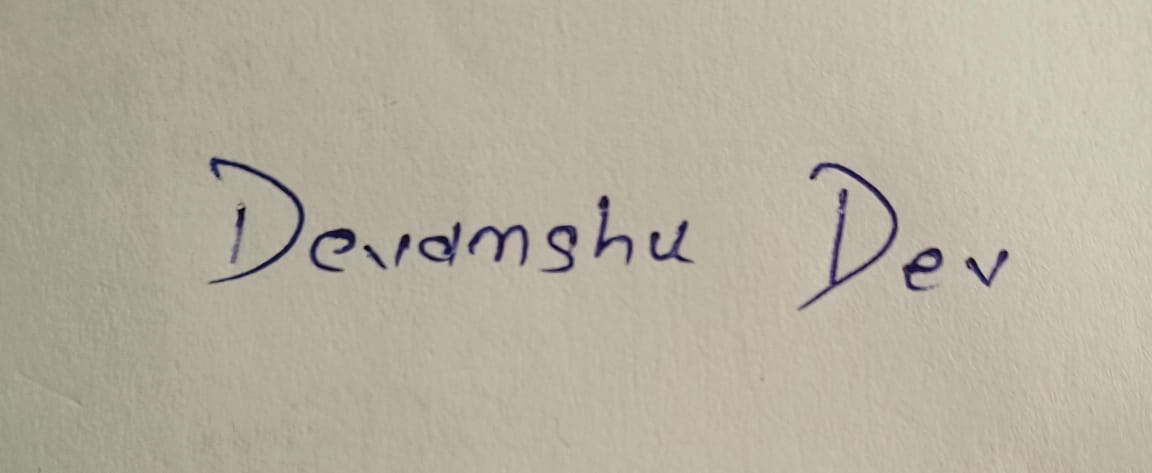 Devamshu Dev